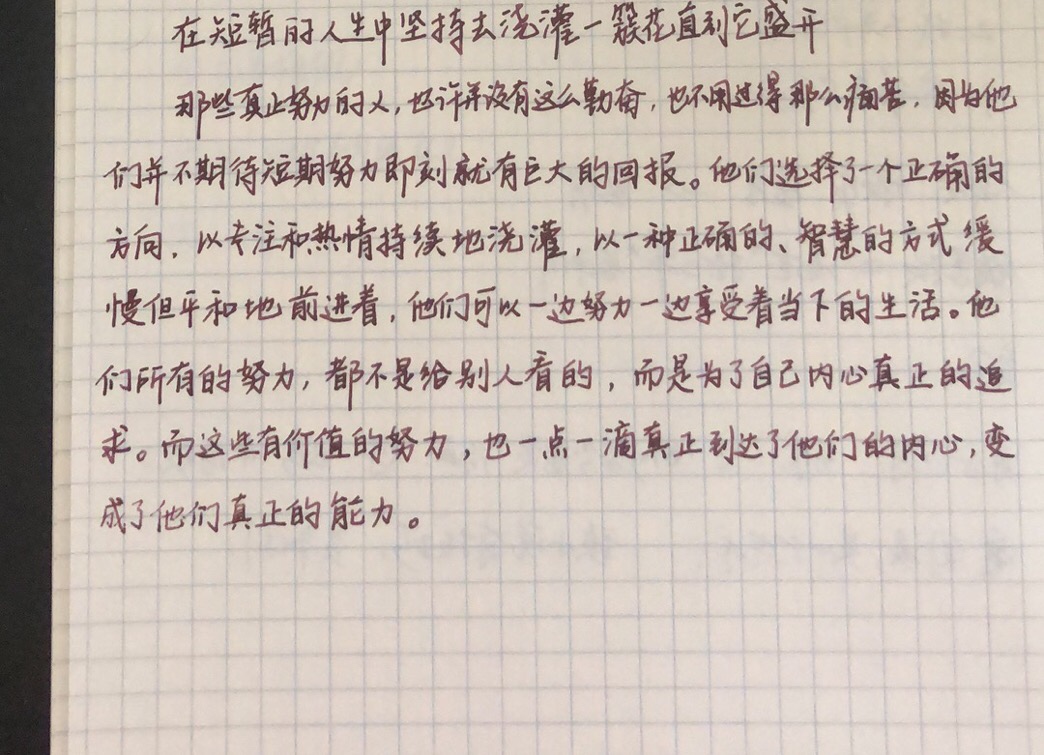 在短暂的人生中坚持去浇灌一簇花直到它盛开
那些真正努力的人，也许并没有这么勤奋，也不用过得那么痛苦，因为他
们并不期待短期努力即刻就有巨大的回报。他们选择了一个正确的
方向，以专注和热情持续地浇灌，以一种正确的、智慧的方式缓
慢但平和地前进着，他们可以一边努力一边享受着当下的生活。他
们所有的努力，都不是给别人看的，而是为了自己内心真正的追
求。而这些有价值的努力，也一点一滴真正到达了他们的内心，变
成了他们真正的能力。